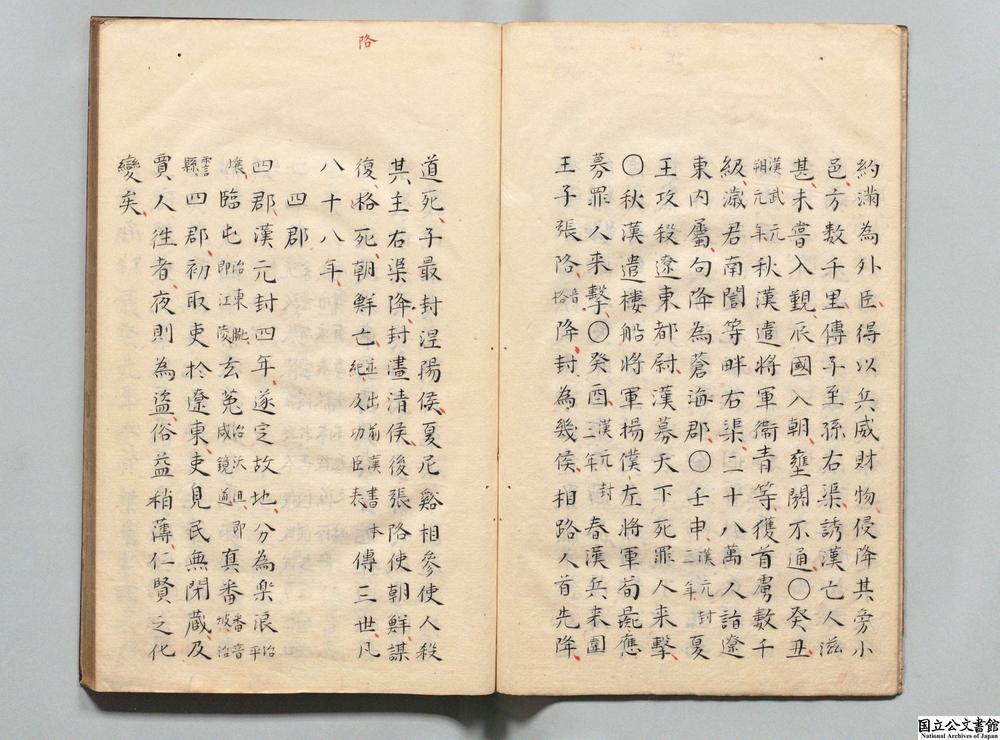 約滿為外臣得以兵威財物侵降其旁小
邑方数千里傳子至孫右渠誘漢亡人滋
甚未嘗入觀辰國入朝壅閼不通〇癸丑
漢武元朔元年秋漢遣將軍衛青等獲首虜數千
級濊君南閭等畔右渠二十八萬人詣遼
東内屬句降為蒼海郡〇壬申漢元封二年夏
王攻殺遼東都尉漢募天下死罪人来擊
〇秋漢遣樓船將軍揚僕左將軍荀彘應
募罪人来擊〇癸酉漢元封三年春漢兵来圍
王子張降音挌降封為幾侯相路人首先降
挌
道死子最封涅陽侯夏尼谿相參使人殺
其主右渠降封畫清侯後張挌使朝鮮謀
復挌死朝鮮亡並出前漢書本紀及功臣表傳三世凡
八十八年
四郡
四郡漢元封四年遂定故地分為楽浪治平
壤臨屯治東暆即江陵玄菟治沃沮即咸鏡道真番番音坡治
霅縣四郡初取吏於遼東吏見民無閉蔵及
賈人徃者夜則為盗俗益稍薄仁賢之化
變矣
国立公文書館
National Archives of Japan